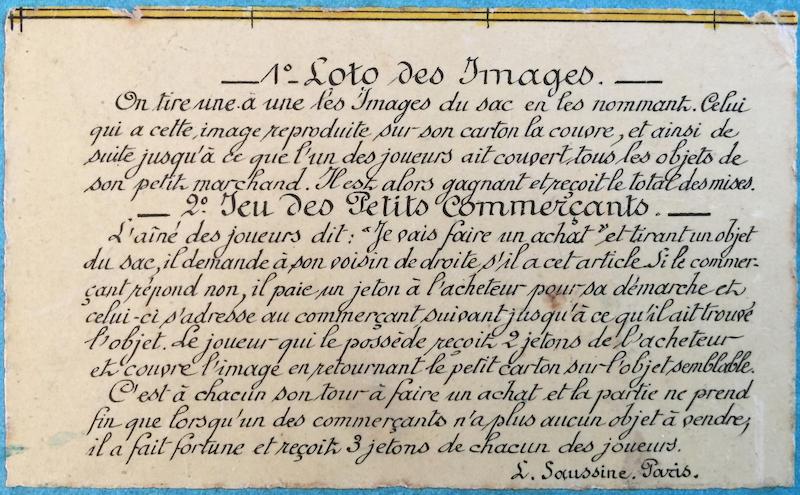 — 1º Loto des Images. —
On tire une à une les Images du sac en les nommant. Celui
qui a cette image reproduite sur son carton la couvre, et ainsi de
suite jusqu'à ce que l'un des joueurs ait couvert tous les objets de
son petit marchand. Il est alors gagnant et reçoit le total des mises.
— 2º Jeu des Petits Commerçants. —
L'aîné des joueurs dit : "Je vais faire un achat" et tirant un objet
du sac, il demande à son voisin de droite s'il a cet article. Si le commer-
çant répond non, il paie un jeton à l'acheteur pour sa démarche et
celui-ci s'adresse au commerçant suivant jusqu'à ce qu'il ait trouvé
l'objet. Le joueur qui le possède reçoit 2 jetons de l'acheteur
et couvre l'image en retournant le petit carton sur l'objet semblable.
C'est à chacun son tour à faire un achat et la partie ne prend
fin que lorsqu'un des commerçants n'a plus aucun objet à vendre;
il a fait fortune et reçoit 3 jetons de chacun des joueurs.
L. Saussine. Paris.